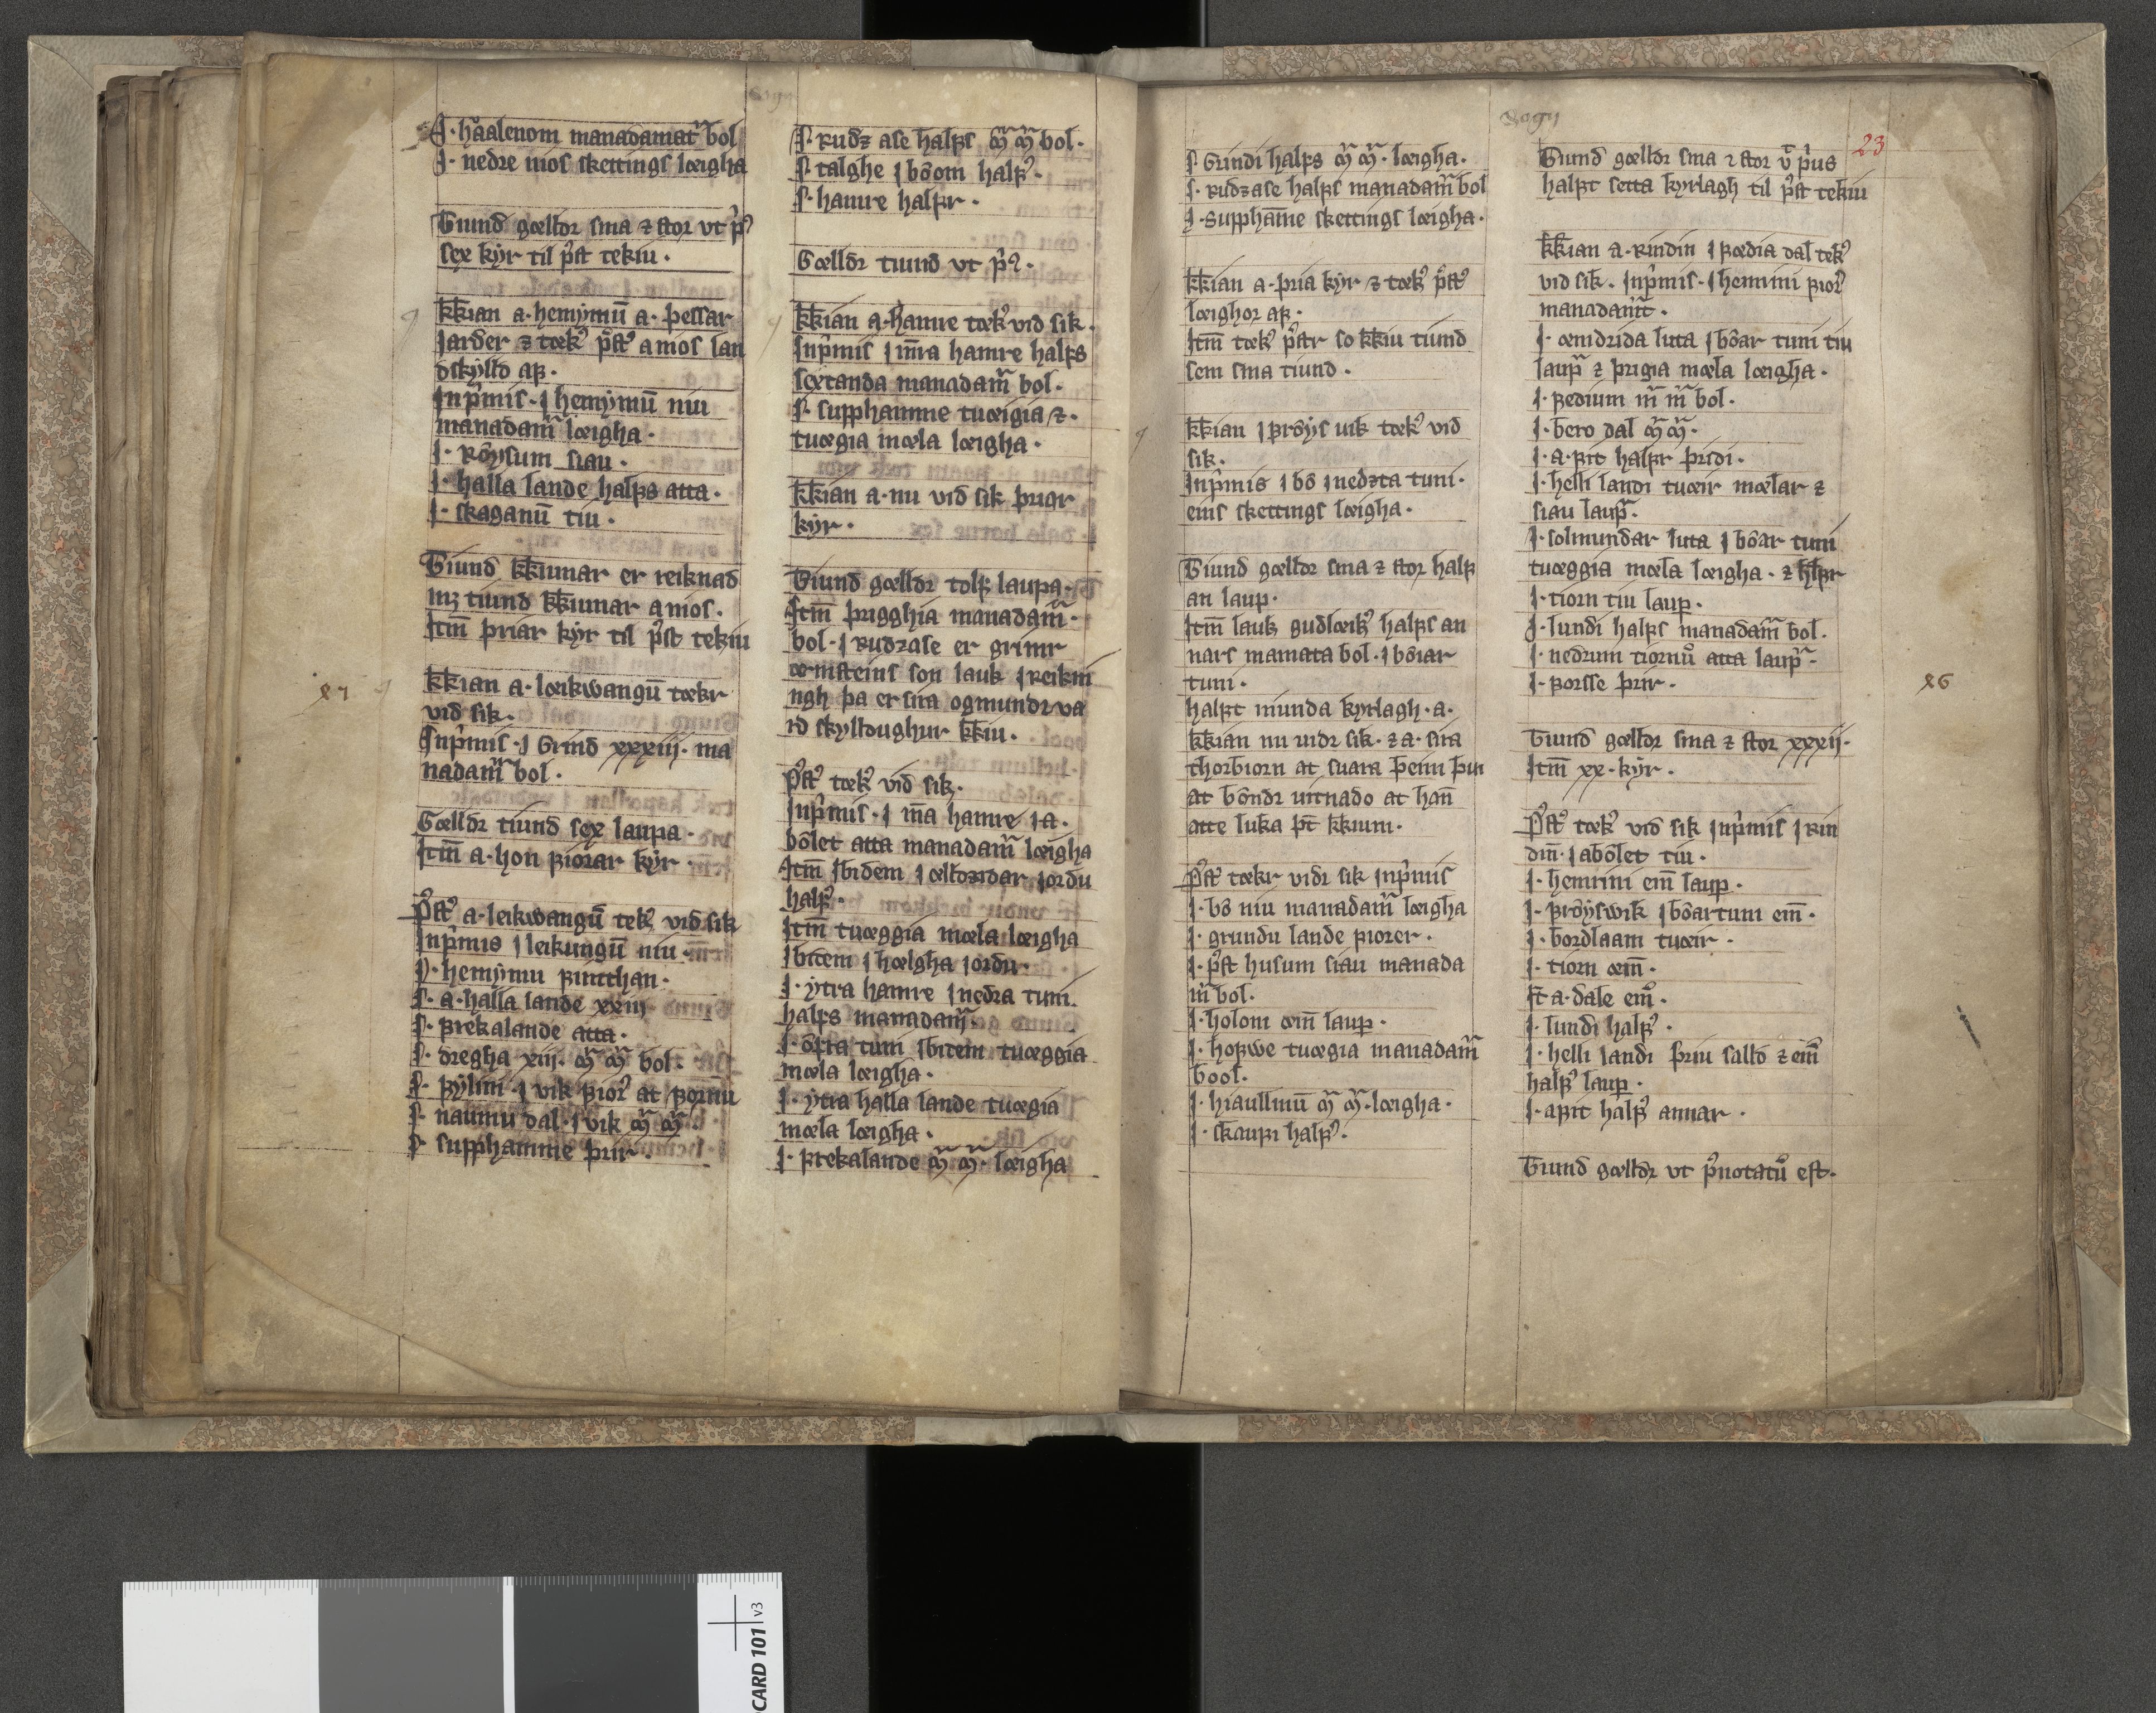 Sogn
J· haalenom manadamat̃ bol
J· nedre mos skettings lœigha
Tiund gœlldr sma ⁊ stor vt p̃ꝰ
sex kyr til p̃st tekiu·
kk̃ian a·hemẏmū a· þessar
Jarder ⁊ tœkꝰ p̃stꝰ a mos lan
dskylld aꝼ·
Jnp̃mis· J hemẏmū niu
manadam̃ lœigha·
J· Rôysum siau·
J· halla lande halꝼs atta·
J· skaganū tiu·
Tiund kk̃iunar er reiknad
mꝫ tiund kk̃iunar a mos·
Jtm̃ þriar kẏr til p̃st tekiu
kk̃ian a·lœikwangū tœkr
vid sik·
Jnp̃mis· J Grind xxxiij· ma
nadam̃ bol·
Gœlldr tiund sex laupa·
Jtm̃ a·hon ꝼiorar kẏr·
P̃stꝰ a·leikwangū tekꝰ vid sik
Jnp̃mis J leikungū niu·
J· hemẏmu ꝼimthan·
J· a·halla lande xxiij
J· ꝼrekalande atta·
J· dregha xiij· m̃ m̃ bol·
J· ꝼylini· J vik ꝼiorꝰ at ꝼornu
J· naumu dal· J vik m̃ m̃·
J· supphamme þrir·
J· Rudꝫ ase halꝼs m̃ m̃ bol·
J· talghe J bôom halꝼꝰ·
J· hamre halꝼr·
Gœlldr tiund vt p̃ꝰ·
kk̃ian a·hamre tœkꝰ vid sik·
Jnp̃mis J m̃ra hamre halꝼs
sextanda manadam̃ bol·
J· supphamme tuœigia ⁊·
tuœgia mœla lœigha·
kk̃ian a·nu vid sik þriar
kẏr·
Tiund gœlldr tolꝼ laupa·
Jtm̃ þrigghia manadam̃·
bol· J Rudꝫase er grimr
œrnsteins son lauk J reikni
ngh þa er sira ogmundr va
rd skylldughur kk̃iu·
P̃stꝰ tœkꝰ vid sik·
Jnp̃mis· J m̃a hamre J a·
bôlet atta manadam̃ lœigha
Jtm̃ Jbidem J œlldꝫidar Jordu
halꝼꝰ·
Jtm̃ tuœggia mœla lœigha
Jbitem J hœlgha Jordu·
J· ytra hamre J nedra tuni
halꝼs manadam̃·
J· ôꝼra tuni Jbitem tuœggia
mœla lœigha·
J· ytra halla lande tuœgia
mœla lœigha·
J· ꝼrekalande m̃ m̃· lœigha
Sogn
23
J· Grindi halꝼs m̃ m̃· lœigha·
J· Rudꝫase halꝼs manadam̃ bol
J· Supphām̄e skettings lœigha·
kk̃ian a·þria kẏr ⁊ tœkꝰ p̃stꝰ
lœighor aꝼ·
Jtm̃ tœkꝰ p̃str so kk̃iu tiund
sem sma tiund·
kk̃ian J ꝼrôys uik tœkꝰ vid
sik·
Jnp̃mis J bô J nedꝫta tuni·
eins skettings lœigha·
Tiund gœlldr sma ⁊ stor halꝼ
an laup·
Jtm̃ lauk gudlœikꝰ halꝼs an
nars mamata bol· J bôiar
tuni·
halꝼt niunda kyrlagh·a·
kk̃ian nu uidr sik· ⁊ a·sira
thorbiorn at suara þeim þui
at bôndr uitnado at han̄
atte luka þt̄ kk̃ium·
P̃stꝰ tœkr vidr sik Jnp̃mis
J· bô niu manadam̃ lœigha
J· grundu lande ꝼiorer·
J· p̃st husum siau manada
m̃ bol·
J· holom œin̄ laup·
J· hoꝼwe tuœgia manadam̃
bool·
J· hiaullmū m̃ m̃·lœigha·
J· skauꝼi halꝼꝰ·
Tiund gœlldr sma ⁊ stor vt̄ p̃us
halꝼt setta kyrlagh til p̃st tekiu
kk̃ian a·Rindin J ꝼœdia dal tekꝰ
vid sik· Jnp̃mis· J hemrini ꝼiorꝰ
manadam̃t·
J· œnidrida luta J bôar tuni tiu
laup̃ ⁊ þrigia mœla lœigha·
J· ꝼedium m̃ m̃ bol·
J· bero dal m̃ m̃·
J· a·ꝼit halꝼr þridi·
J· helli landi tuœir mœlar ⁊
siau laup̃·
J· solmundar luta J bôar tuni
tuœggia mœla lœigha· ⁊ hlꝼr
J· tiorn tiu laup·
J· lundi halꝼs manadam̃ bol·
J· nedrum tiornū atta laup̃·
J· ꝼorsse þrir·
Tiund gœlldr sma ⁊ stor xxxij·
Jtm̃ xx·kẏr·
P̃stꝰ tœkꝰ vid sik Jnp̃mis J Rin
dm̄· J abôlet tiu·
J· hemrini ein̄ laup·
J· ꝼrôyswik J bôartuni ein̄·
J· bordlaam tuœir·
J· tiorn œin̄·
ꝼt a·dale ein̄·
J· lundi halꝼꝰ·
J· helli landi þriu salld ⁊ ein̄
halꝼꝰ laup·
J· aꝼit halꝼꝰ annar·
Tiund gœlldr vt p̃notatū est·